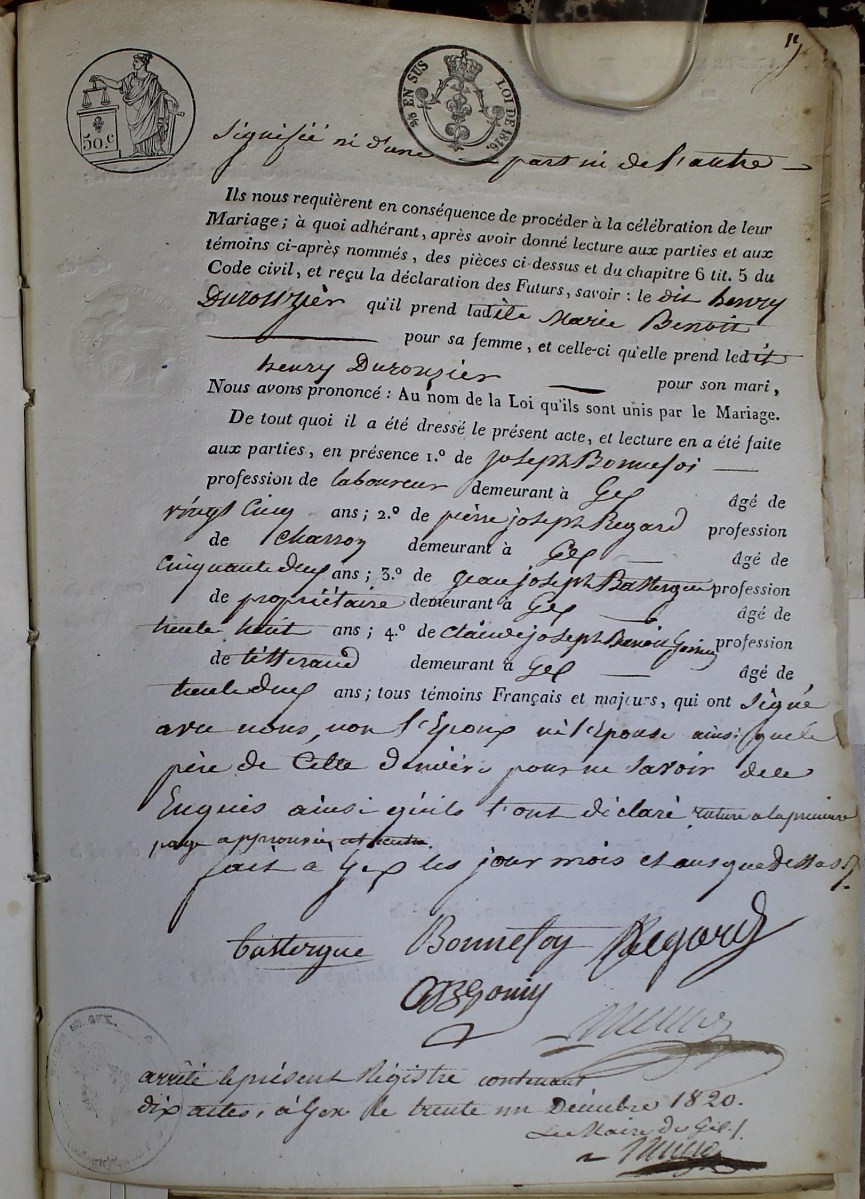 15
50.c
EN SUS LOI DE 1816.
Signifié ni d'une part ni de l'autre
Ils nous requièrent en conséquence de procéder à la célébration de leur
Mariage; à quoi adhérant, après avoir donné lecture aux parties et aux
témoins ci-après nommés, des pièces ci-dessus et du chapitre 6 tit. 5 du
Code civil, et reçu la déclaration des Futurs, savoir : le dit henry
Durouzier qu'il prend ladite Marie Benoit
pour sa femme, et celle-ci qu'elle prend ledit
henry Durouzier pour son mari,
Nous avons prononcé : Au nom de la Loi qu'ils sont unis par le Mariage.
De tout quoi il a été dressé le présent acte, et lecture en a été faite
aux parties, en présence 1.º de joseph Bonnefoi
profession de laboureur demeurant à Gex âgé de
vingt cinq ans; 2.º de pierre joseph Regard profession
de charron demeurant à Gex âgé de
cinquante deux ans; 3.º de jean joseph Battergue profession
de propriétaire demeurant à Gex âgé de
trente huit ans; 4.º de claude joseph Benoit Gonin profession
de titterand demeurant à Gex âgé de
trente deux ans; tous témoins Français et majeurs, qui ont signé
avec nous, non l'Epoux ni l'Epouse ainsi que le
père de Cette dernière pour ne savoir de ce
Enquis ainsi qu'ils l'ont déclaré rature a la premiere
page approuvée
fait à Gex les jour mois et ans que dessus
Battergue Bonnefoy Regard
CJBGonin
arrêté le présent Régistre contenant
dix actes, à Gex le trente un Décembre 1820.
Le Maire de Gex